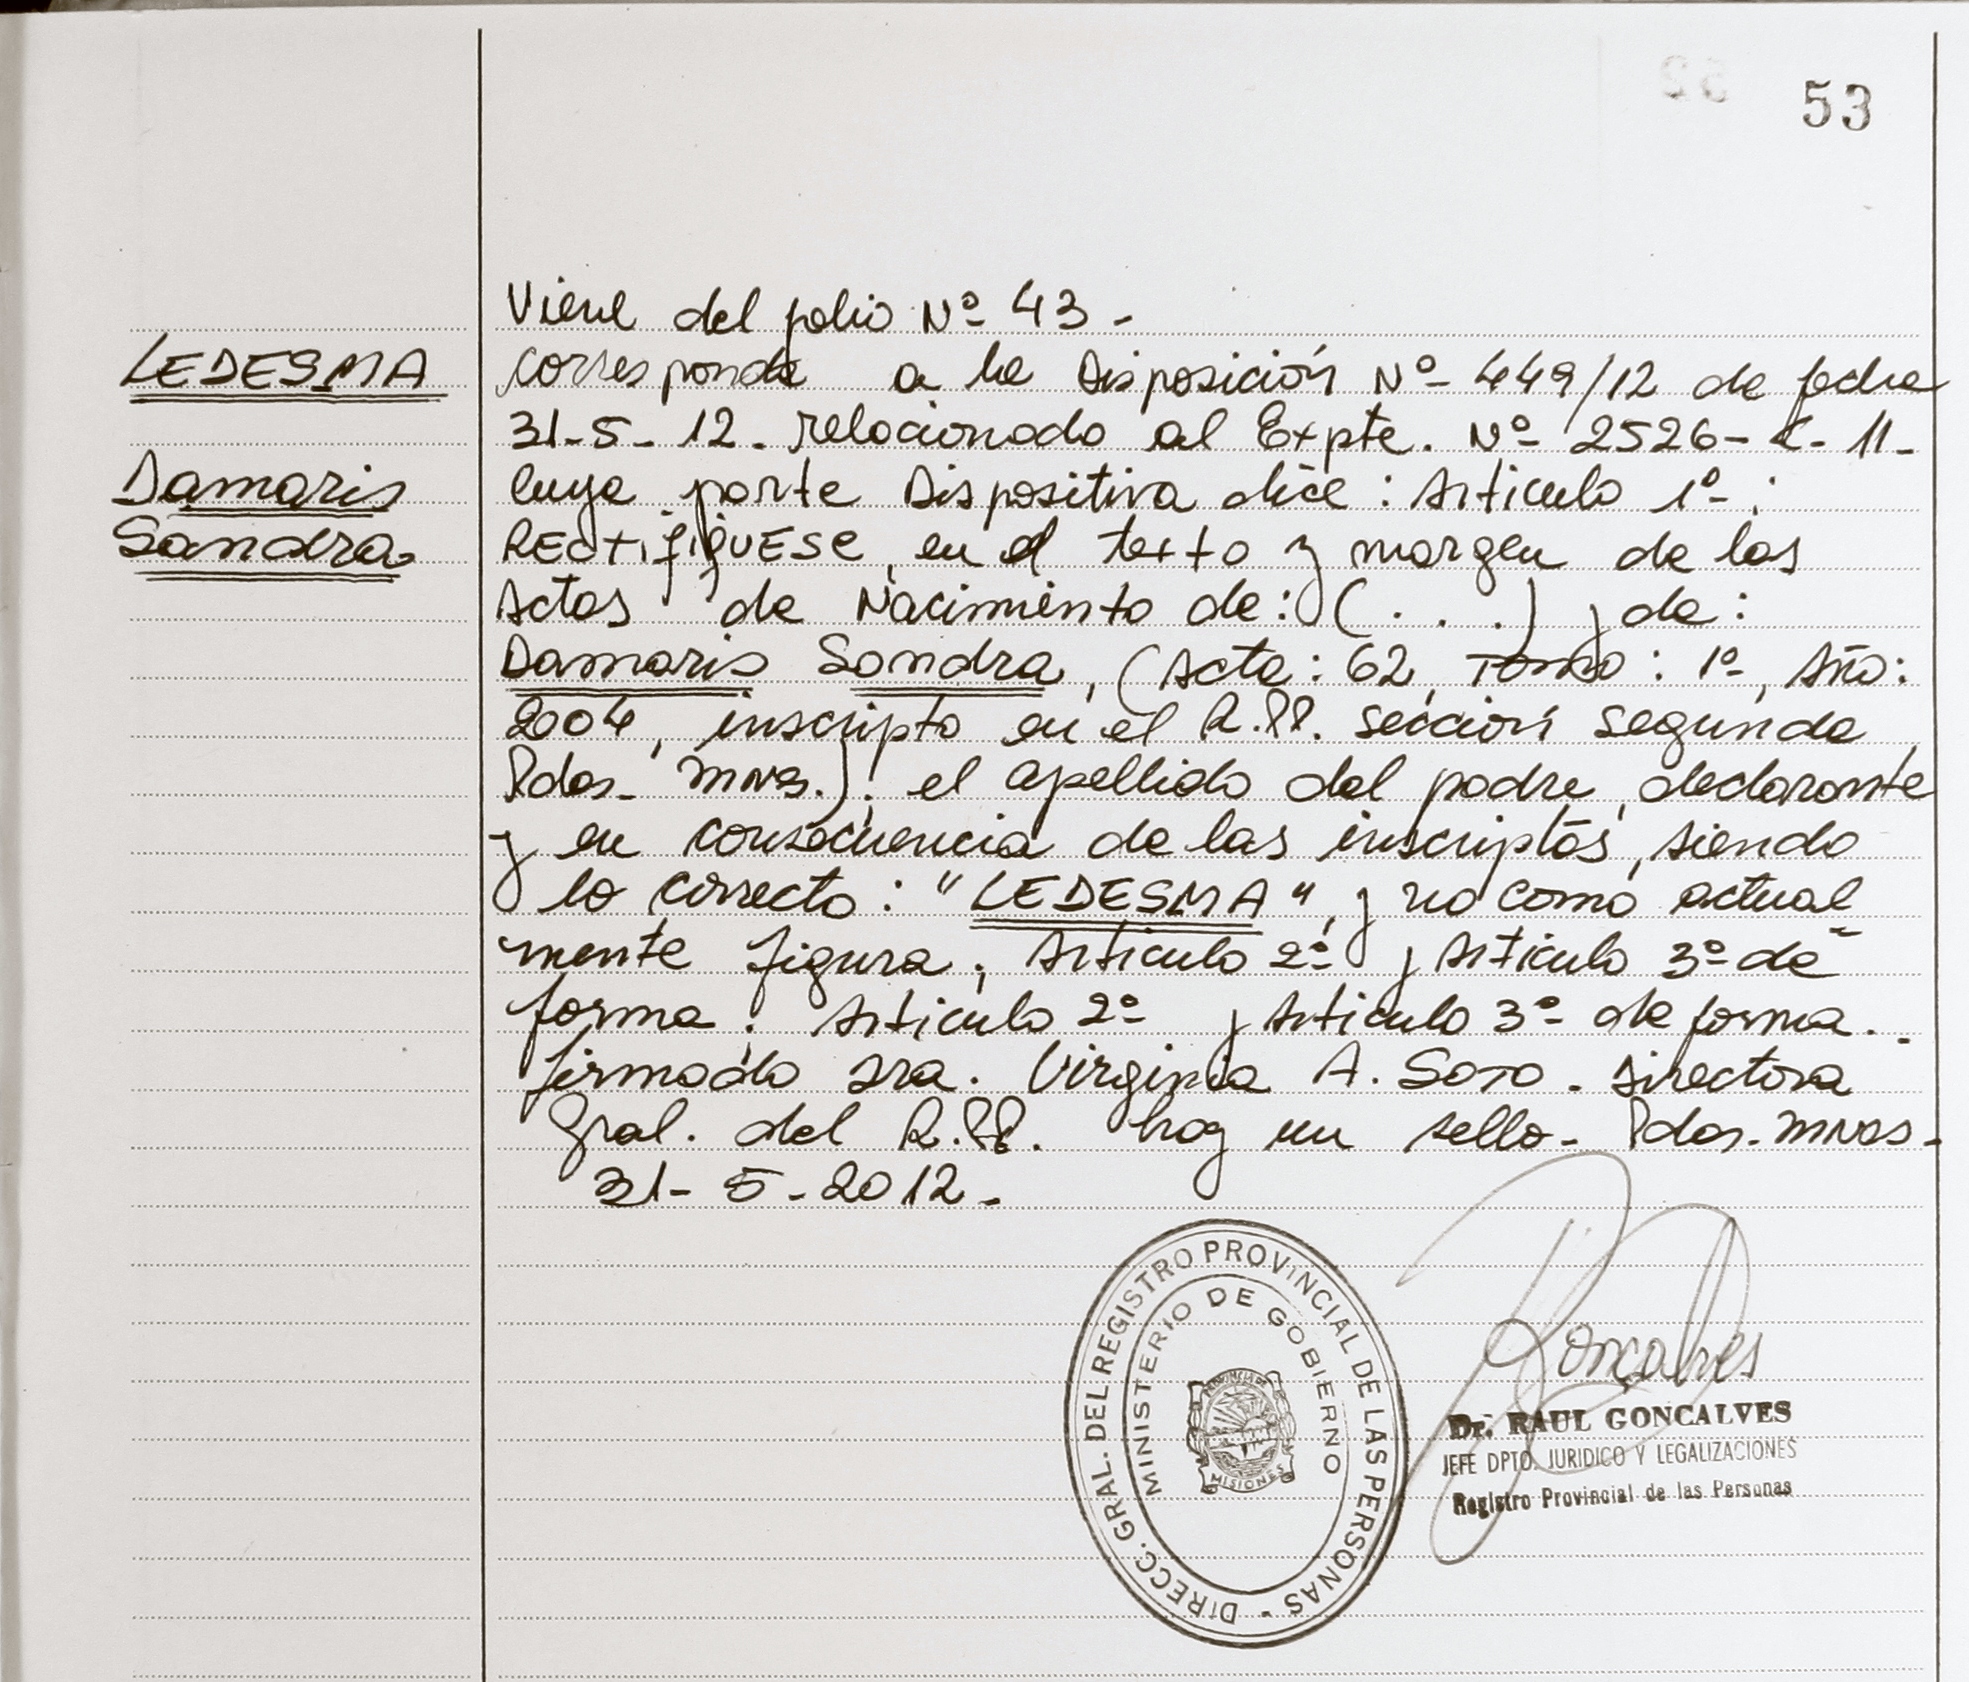 53
Viene del folio Nº 43 -
LEDESMA
corresponde a la Disposición Nº 449/12 de fecha
31-5-12. relacionado al Expte. Nº 2526-C-11-
Damaris
cuya parte Dispositiva dice: Articulo 1º:
Sandra
RECtifiQUESE, en el texto y margen de las
Actas de Nacimiento de: (...) y de:
Damaris Sandra, (Acta: 62, Tomo: 1º, Año:
2004, inscripto en el R.P.P. sección segunda,
Pdas. Mnes.); el apellido del padre, declarante
y en consecuencia de las inscriptas, siendo
lo correcto: "LEDESMA", y no como actual
mente figura, Articulo 2º y Articulo 3º de
forma. Articulo 2º y Articulo 3º de forma.-
firmado sra. Virginia A. Soto. Directora
Gral. del R.P.P. hay un sello- Pdas. Mnes-
31-5-2012.-
DIRECC. GRAL. DEL REGISTRO PROVINCIAL DE LAS PERSONAS -
MINISTERIO DE GOBIERNO
PROVINCIA DE
MISIONES
Gonçalves
Dr. RAUL GONCALVES
JEFE DPTO. JURIDICO Y LEGALIZACIONES
Registro Provincial de las Personas